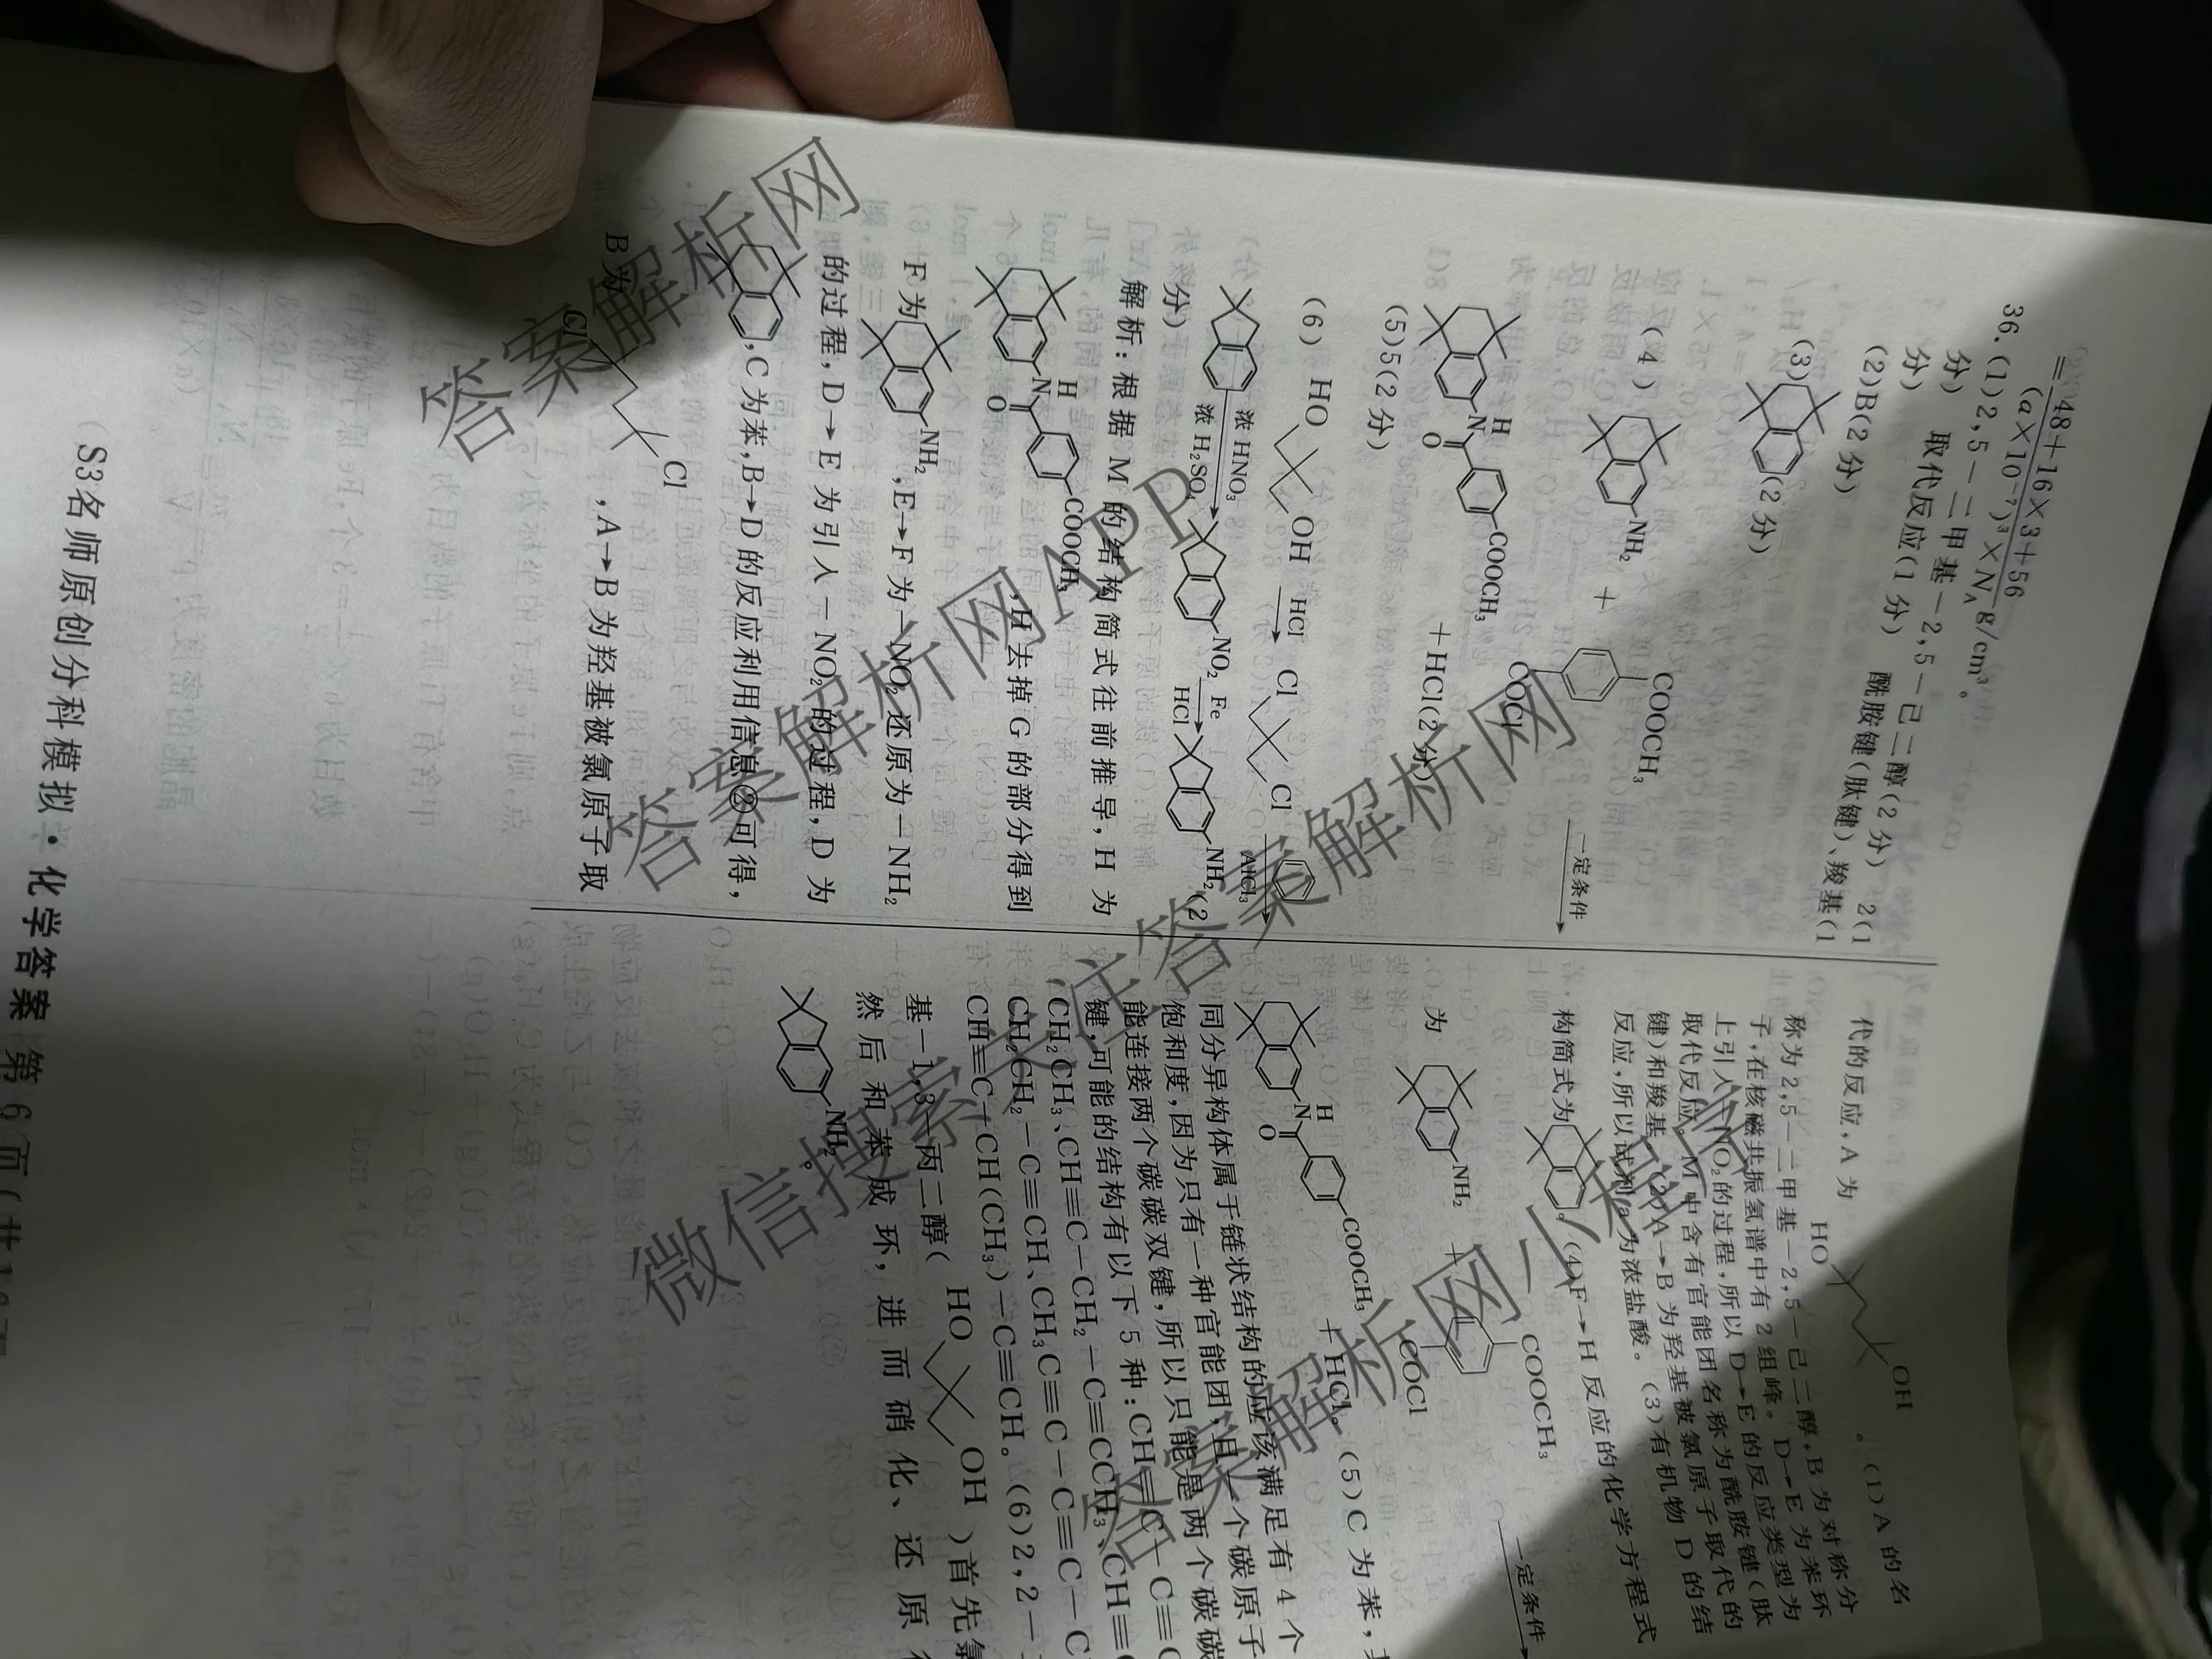 = 48+16×3+56 / (a×10⁻⁷)³×N_A g/cm³。
36. (1)2,5-二甲基-2,5-己二醇(2分) 2(1
分) 取代反应(1分) 酰胺键(肽键)、羧基(1
分)
(2)B(2分)
(3) (2分)
(4) NH₂ + COOCH₃ COCl 一定条件→
H N O COOCH₃ +HCl(2分)
(5)5(2分)
(6) HO OH HCl→ Cl Cl AlCl₃→
浓HNO₃ 浓H₂SO₄→ NO₂ Fe HCl→ NH₂(2
分)
解析:根据M的结构简式往前推导,H为
H N O COOCH₃,H去掉G的部分得到
F为 NH₂,E→F为-NO₂还原为-NH₂
的过程,D→E为引入-NO₂的过程,D为
,C为苯,B→D的反应利用信息②可得,
B为 Cl Cl,A→B为羟基被氯原子取
代的反应,A为 HO OH。(1)A的名
称为2,5-二甲基-2,5-己二醇,B为对称分
子,在核磁共振氢谱中有2组峰。D→E为苯环
上引入-NO₂的过程,所以D→E的反应类型为
取代反应。M中含有官能团名称为酰胺键(肽
键)和羧基。(2)A→B为羟基被氯原子取代的
反应,所以试剂a为浓盐酸。(3)有机物D的结
构简式为 。(4)F→H反应的化学方程式
为 NH₂ + COOCH₃ COCl 一定条件→
H N O COOCH₃ +HCl。(5)C为苯,
同分异构体属于链状结构的应该满足有4个
饱和度,因为只有一种官能团,且一个碳原子
能连接两个碳碳双键,所以只能是两个碳碳
键,可能的结构有以下5种:CH≡C-C≡C
-CH₂CH₃、CH≡C-CH₂-C≡CCH₃、CH≡C
CH₂CH₂-C≡CH、CH₃C≡C-C≡C-C
CH≡C-CH(CH₃)-C≡CH。(6)2,2-
基-1,3-丙二醇( HO OH )首先氯
然后和苯成环,进而硝化、还原
NH₂。
S3名师原创分科模拟·化学答案 第6页(共
答案解析网
答案解析网APP
答案解析网
微信搜索
答案解析网小程序